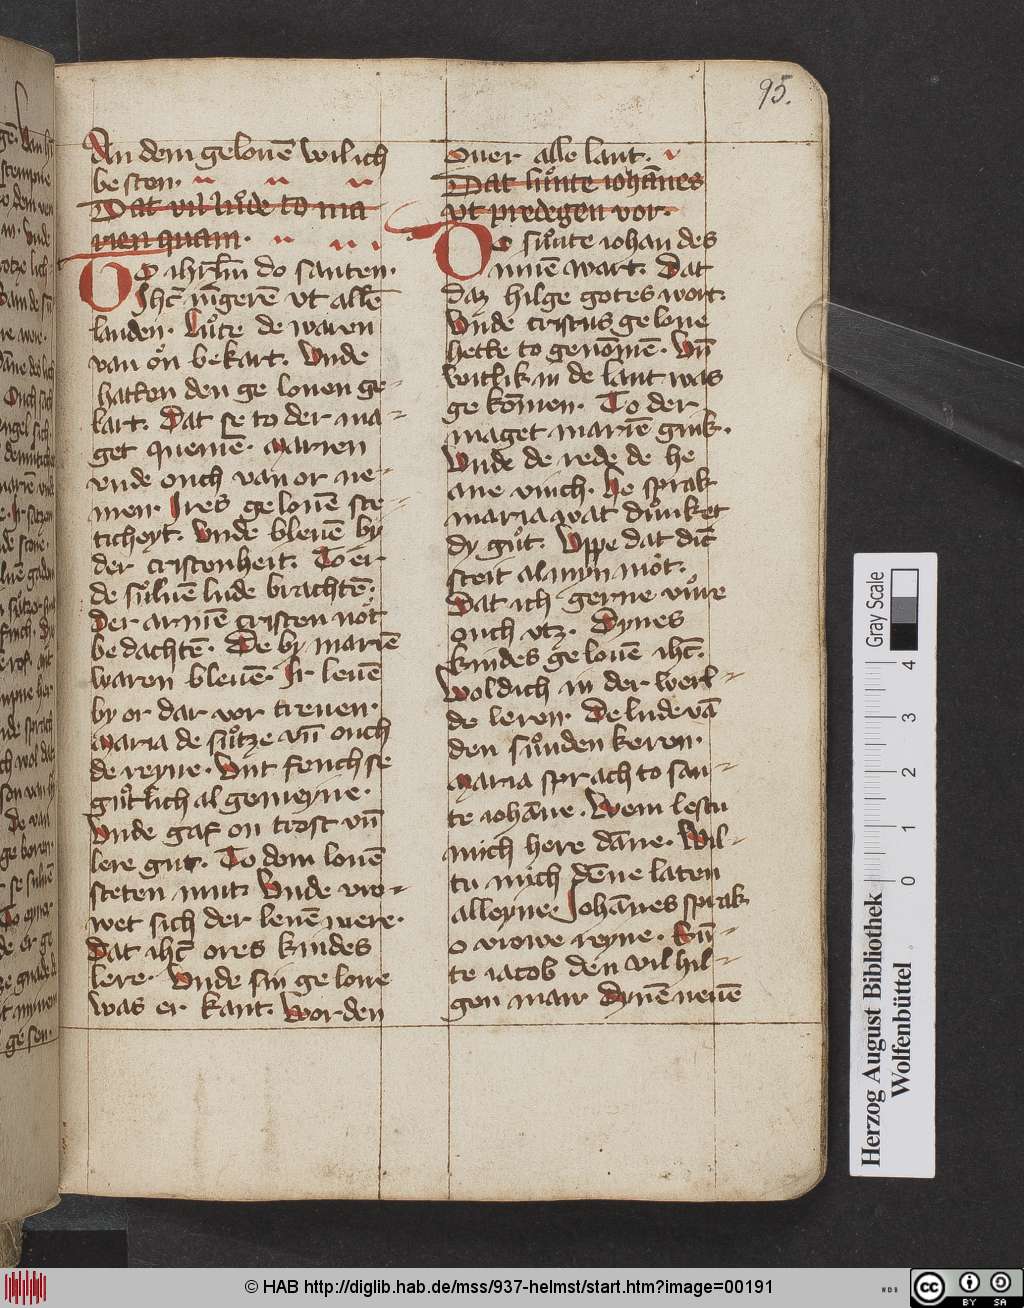 95.
An dem gelouē wil ich
be sten.
Dat vil lu͛de to ma
rien quam.
Do ihrl'm do santen.
Jhc̄ iūgerē vt allē
landen. Lu͛te de waren
van on̊ bekart. Vnde
hatten den ge louen ge⸗
lart. Dat se to der ma⸗
get quemē. Marien
vnde ouch van or ne⸗
men. Ires gelouē ste⸗
ticheyt. Vnde bleuē by
der cristenheit. To er
de su͛luē lude brachtē.
Der armē cristen not̊
be dachtē. De by mariē
waren bleuē. Ir leuē
by or dar vor treuen.
Maria de su͛tze vn̄ ouch
de reyne. Vnt fenchse
gu͛tlich al gemeyne.
Vnde gaf on trost vn̄
lere gut. To dem louē
steten mut. Vnde vro⸗
wet sich der leuē mere.
Dat ihc̄ ores kindes
lere. Vnde sin ge loue
was er kant. Worden
Ouer alle lant.
Dat su͛nte iohānes
vt predegen vor.
Do su͛nte iohan des
innē wart. Dat
daz hilge gotes wort.
Vnde cristus geloue
hette to genōmen. Vn̄
witlik in de lant was
ge kōmen. To der
maget mariē gink.
Vnde de rede de he
ane vinch. He sprak
maria wat du͛nket
dy gu͛t. Vppe dat dīc
steit al myn mot̊.
Dat ich gerne vu͛re
ouch vtz. Dynes
kindes ge louē ihc̄.
Wol dich in der werl⸗
de leren. De lude vā
den su͛nden keren.
Maria sprach to san⸗
te iohāne. Wem lestu
mich here dāne. Wil⸗
tu mich dēne laten
alleyne. Johānes sprak
o vrowe reyne. Sūn⸗
te iacob den vil hil⸗
gen man. Dynē neuē
Gray Scale
0 1 2 3 4
Herzog August Bibliothek
Wolfenbüttel
© HAB http://diglib.hab.de/mss/937-helmst/start.htm?image=00191
WDB
CC BY SA